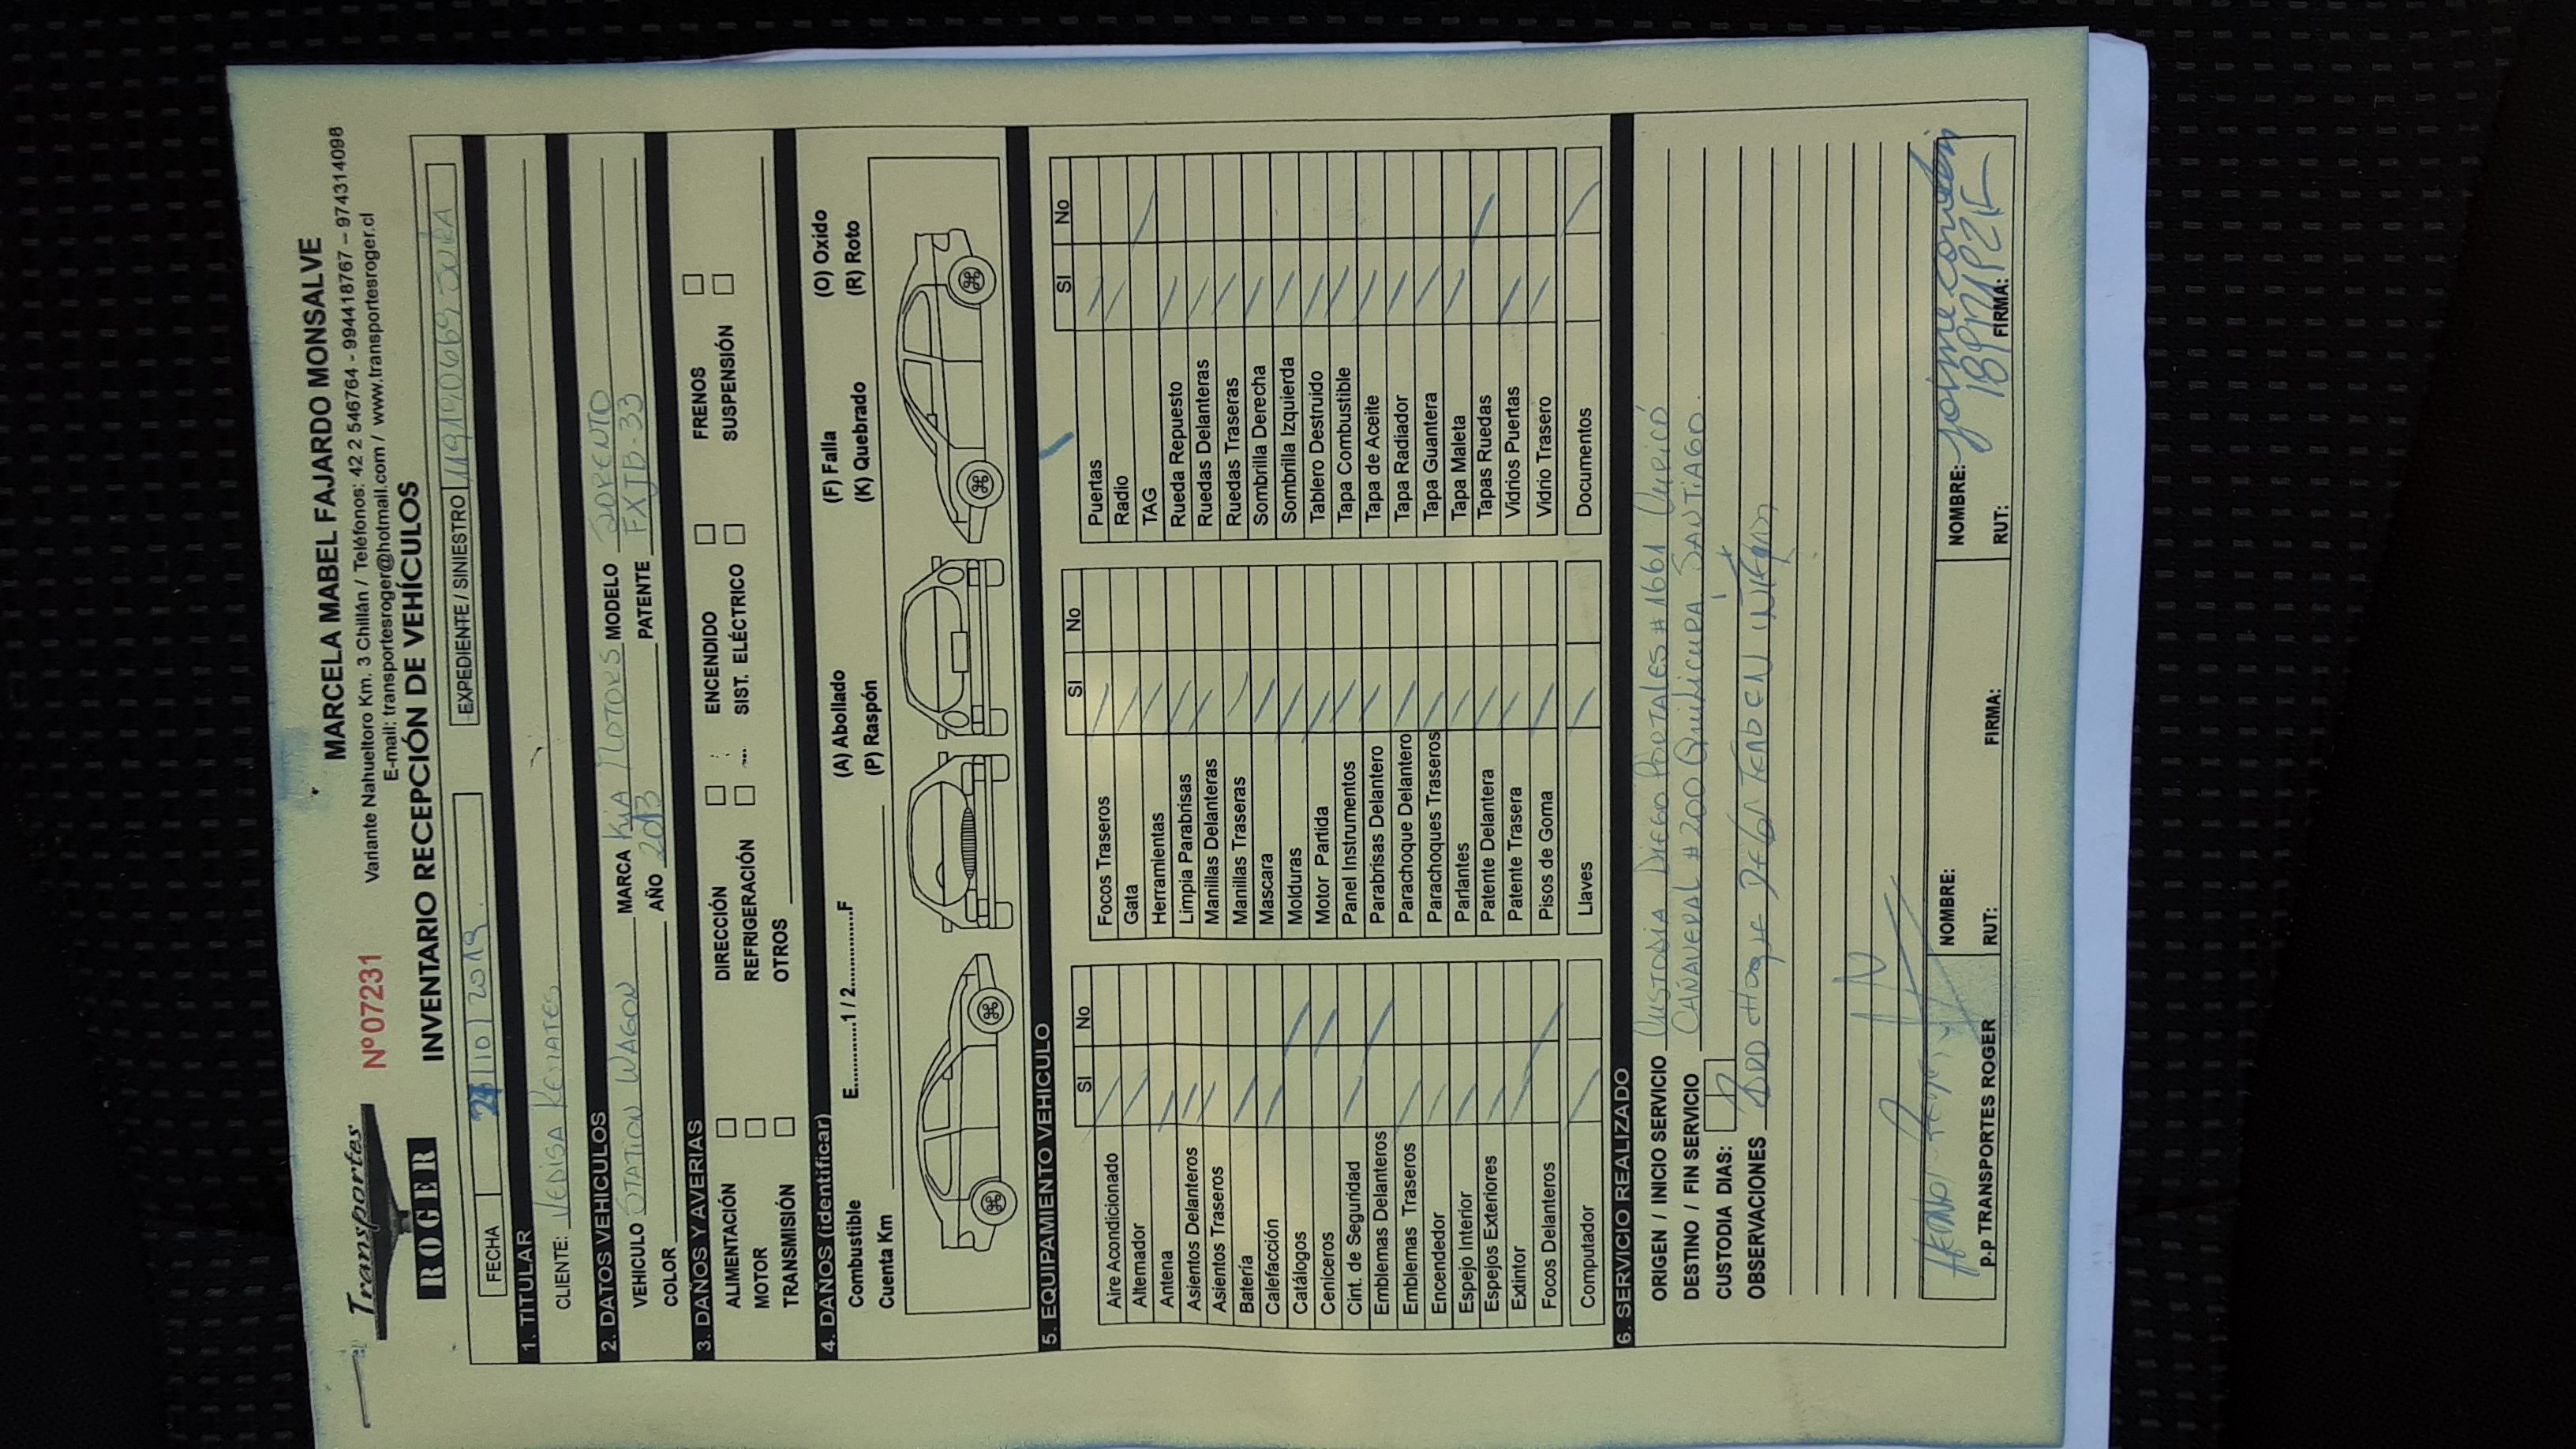 Transportes
ROGER
Nº 07231
MARCELA MABEL FAJARDO MONSALVE
Variante Nahueltoro Km. 3 Chillán / Teléfonos: 42 2 546764 - 994418767 – 974314098
E-mail: transportesroger@hotmail.com / www.transportesroger.cl
INVENTARIO RECEPCIÓN DE VEHÍCULOS
FECHA /10/2019 EXPEDIENTE / SINIESTRO SURA
1. TITULAR
CLIENTE: VEDISA REMATES
2. DATOS VEHICULOS
VEHICULO STATION WAGON MARCA KIA MOTORS MODELO SORENTO
COLOR AÑO 2013 PATENTE FXJB-33
3. DAÑOS Y AVERIAS
ALIMENTACIÓN DIRECCIÓN ENCENDIDO FRENOS
MOTOR REFRIGERACIÓN SIST. ELÉCTRICO SUSPENSIÓN
TRANSMISIÓN OTROS
4. DAÑOS (identificar)
Combustible E.............1 / 2..............F (A) Abollado (F) Falla (O) Oxido
Cuenta Km (P) Raspón (K) Quebrado (R) Roto
5. EQUIPAMIENTO VEHICULO
SI No
Aire Acondicionado
Alternador
Antena
Asientos Delanteros
Asientos Traseros
Batería
Calefacción
Catálogos
Ceniceros
Cint. de Seguridad
Emblemas Delanteros
Emblemas Traseros
Encendedor
Espejo Interior
Espejos Exteriores
Extintor
Focos Delanteros
Computador
SI No
Focos Traseros
Gata
Herramientas
Limpia Parabrisas
Manillas Delanteras
Manillas Traseras
Mascara
Molduras
Motor Partida
Panel Instrumentos
Parabrisas Delantero
Parachoque Delantero
Parachoques Traseros
Parlantes
Patente Delantera
Patente Trasera
Pisos de Goma
Llaves
SI No
Puertas
Radio
TAG
Rueda Repuesto
Ruedas Delanteras
Ruedas Traseras
Sombrilla Derecha
Sombrilla Izquierda
Tablero Destruido
Tapa Combustible
Tapa de Aceite
Tapa Radiador
Tapa Guantera
Tapa Maleta
Tapas Ruedas
Vidrios Puertas
Vidrio Trasero
Documentos
6. SERVICIO REALIZADO
ORIGEN / INICIO SERVICIO CUSTODIA DIEGO PORTALES # 1661 CURICÓ
DESTINO / FIN SERVICIO CAÑAVERAL # 200 QUILICURA SANTIAGO.
CUSTODIA DIAS:
OBSERVACIONES
p.p TRANSPORTES ROGER
NOMBRE:
RUT: FIRMA:
NOMBRE: Jaime
RUT: FIRMA: